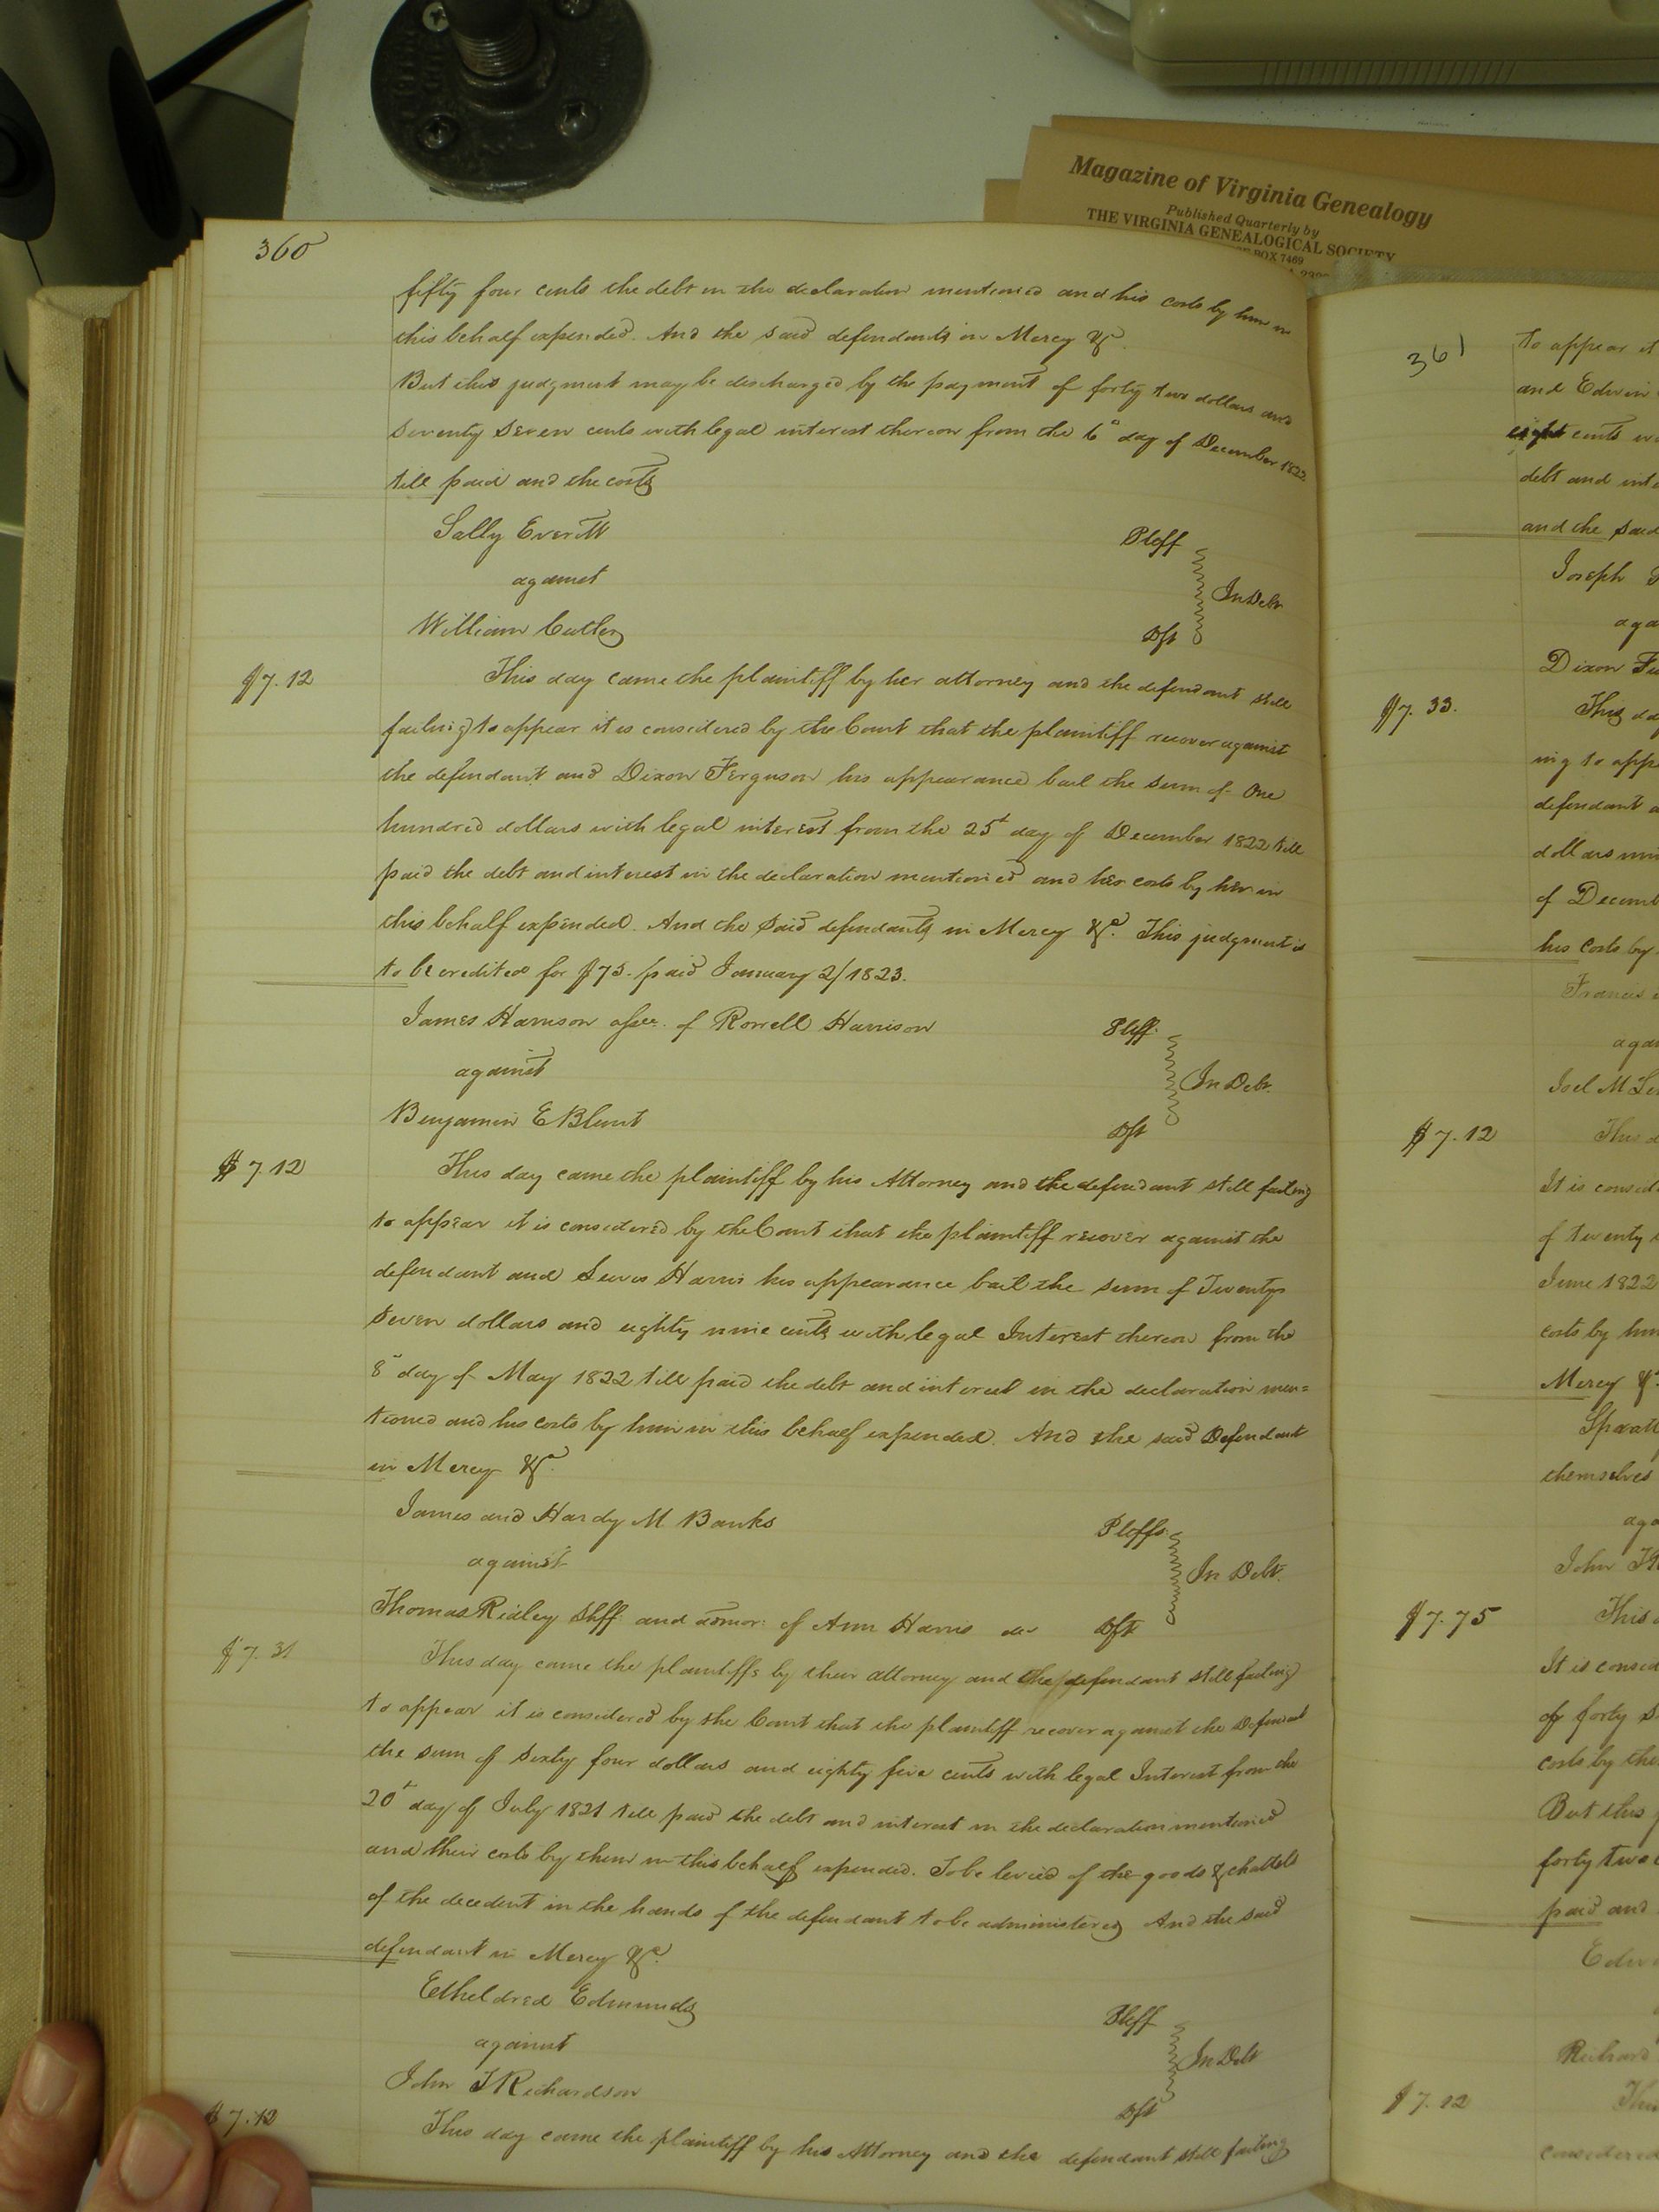 Magazine of Virginia Genealogy
Published Quarterly by
THE VIRGINIA GENEALOGICAL SOCIETY
BOX 7469
360
fifty four cents the debt in the declaration mentioned and his costs by him in
this behalf expended. And the said defendants in Mercy &c.
But this judgment may be discharged by the payment of forty two dollars and
seventy seven cents with legal interest thereon from the 6th day of December 1822
till paid and the costs
Sally Everitt Pltff
against In Debt
William Cutler Dft
$7.12 This day came the plaintiff by her attorney and the defendant still
failing to appear it is considered by the Court that the plaintiff recover against
the defendant and Dixon Ferguson his appearance bail the sum of One
hundred dollars with legal interest from the 25t day of December 1822 till
paid the debt and interest in the declaration mentioned and her costs by her in
this behalf expended. And the said defendants in Mercy &c. This judgment is
to be credited for $75. paid January 2/1823.
James Harrison assee. of Rorrell Harrison Pltff.
against In Debt.
Benjamin E Blunt Dft
$7.12 This day came the plaintiff by his Attorney and the defendant still failing
to appear it is considered by the Court that the plaintiff recover against the
defendant and Lewis Harris his appearance bail the sum of Twenty
seven dollars and eighty nine cents with legal Interest thereon from the
8th day of May 1822 till paid the debt and interest in the declaration men=
tioned and his costs by him in this behalf expended. And the said Defendant
in Mercy &c.
James and Hardy M. Banks Pltffs.
against In Debt.
Thomas Ridley Shff. and admor: of Ann Harris Dft
$7.31 This day came the plaintiffs by their attorney and the defendant still failing
to appear it is considered by the Court that the plaintiff recover against the Defendant
the sum of sixty four dollars and eighty five cents with legal Interest from the
20t day of July 1821 till paid the debt and interest in the declaration mentioned
and their costs by them in this behalf expended. To be levied of the goods & chattels
of the decedent in the hands of the defendant to be administered And the said
defendant in Mercy &c.
Etheldred Edmunds Pltff
against In Debt
John T Richardson Dft
$7.12 This day came the plaintiff by his Attorney and the defendant still failing
361
to appear it
and Edwin
eight cents
debt and
and the said
Joseph
Dixon
$7.33. This
ing to
defendant
dollars
of
his costs by
Francis
Joel M
$7.12 This
It is
of twenty
June 1822
costs by
Mercy &c
themselves
John
$7.75 This
It is
of forty
costs by
But this
forty two
paid and
Richard
$7.12
considered